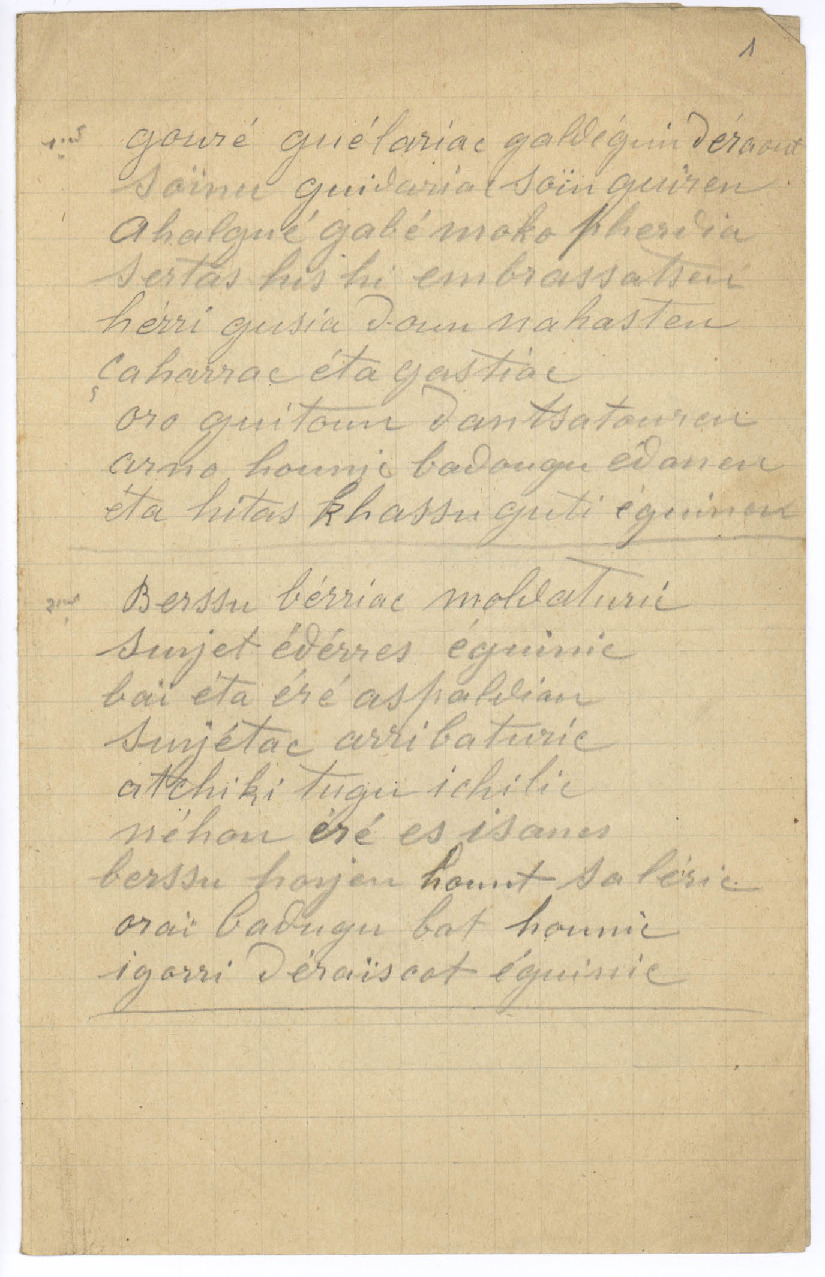 1
gouré guélariac galdéguin déraout
soïnu guidariac soïn guiren
ahalgué gabé moko pherdia
sertas hishi embrassatsen
hérri gusia doun nahasten
çaharrac éta gastiac
oro guitoun dantsatouren
arno hounic badougu édanen
éta hitas khassu guti éguinen
2eme Berssu bérriac moldaturic
sujet édérres éguinic
baï éta éré aspaldian
sujétac arribaturic
atchiki tugu ichilic
néhou éré es isanes
berssu horjen hount saléric
oraï badugu bat hounic
igorri déraïscot éguinic